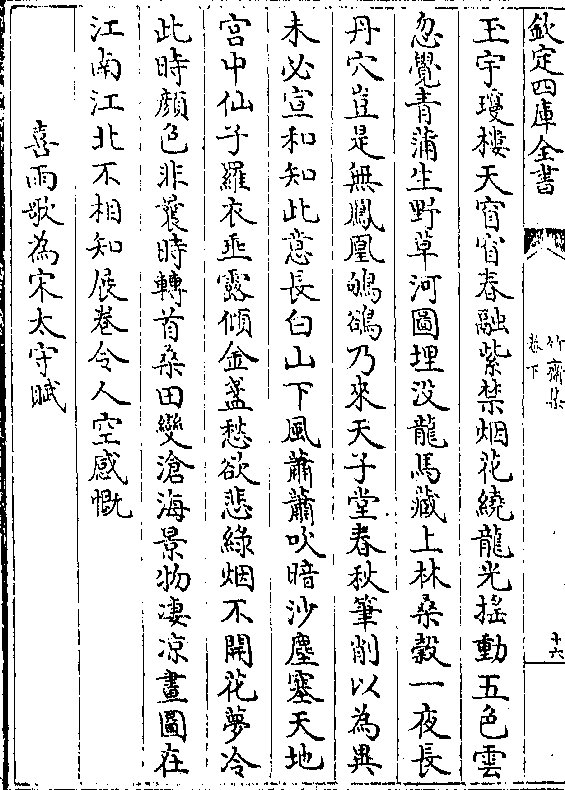 欽定四庫全書
竹齋集
卷下
十六
玉宇瓊樓天窅窅春融紫禁烟花繞龍光揺動五色雲
忽覺青蒲生野草河圖埋没龍馬藏上林桑榖一夜長
丹穴豈是無鳳凰鴝鵒乃來天子堂春秋筆削以為異
未必宣和知此意長白山下風蕭蕭吹暗沙塵塞天地
宫中仙子羅衣垂露傾金盞愁欲悲綠烟不開花夢冷
此時顔色非曩時轉首桑田變滄海景物凄凉畫圖在
江南江北不相知展卷令人空感慨
喜雨歌為宋太守賦